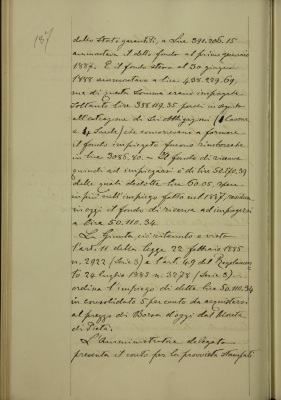 187
dallo Stato garantiti, a Lire 391.205.15
ammontava il detto fondo al primo gennaio
1887. E il fondo stesso al 30 giugno
1888 ammontava a lire 438.229.69,
ma di questa somma erano impiegate
soltanto lire 388.119.35 perché in seguito
all'estrazione di Sei obbligazioni (
e 4 Sarde) che concorrevano a formare
il fondo impiegato furono rimborsate
in lire 3086.80. — Il fondo di riserva
quindi ad impiegarsi è di lire 50.170.39
dalle quali dedotte lire 60.05, spese
in più nell'impiego fatto nel 1887, residua
in oggi il fondo di riserva ad impiegarsi
a Lire 50.110.34
La Giunta, ciò ritenuto e visto
l'art. 11 della legge 22 febbraio 1885
n. 2922 (Serie 3) e l'art. 49 del Regolamen
to 24 luglio 1885 n. 3278 (Serie 3)
ordina l'impiego di dette lire 50.110.34
in consolidato 5 per cento da acquistarsi
al prezzo di Borsa d'oggi dal Monte
di Pietà.
L'Amministratore delegato
presenta il conto per la provvista stampati